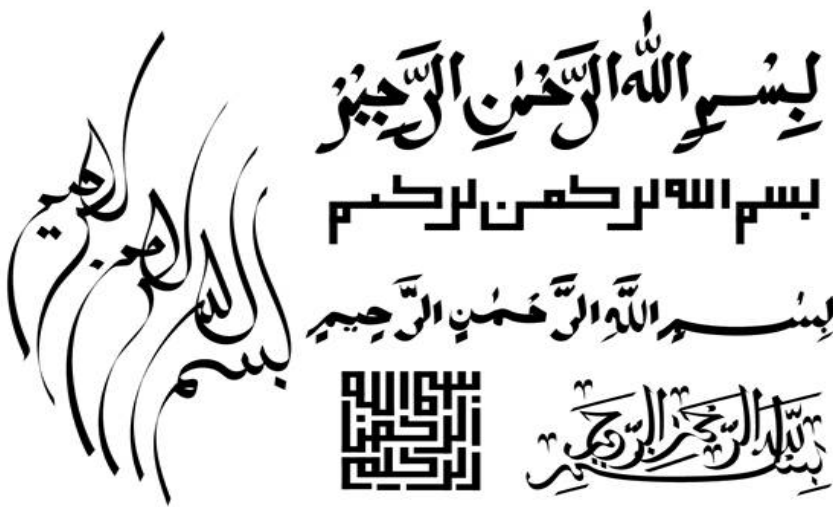 بِسْمِ اللهِ الرَّحْمٰنِ الرَّحِيْمِ
بسم الله الرحمن الرحيم
بِسْمِ اللَّهِ الرَّحْمٰنِ الرَّحِيمِ
بسم الله الرحمن الرحيم
بسم الله الرحمن الرحيم
بسم الله الرحمن الرحيم